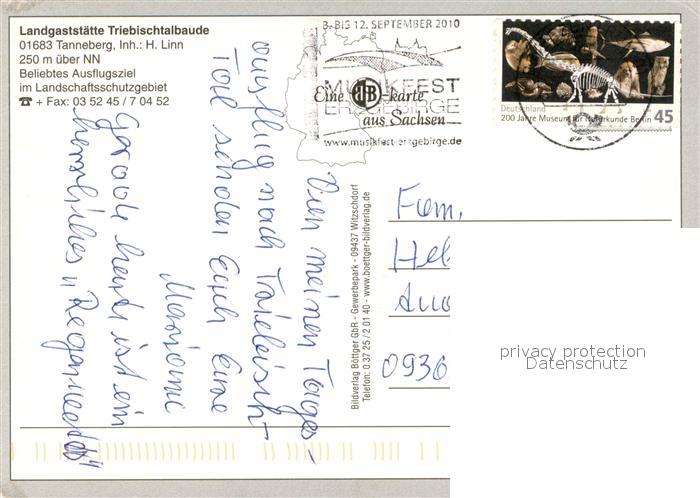 Landgaststätte Triebischtalbaude
01683 Tanneberg, Inh.: H. Linn
250 m über NN
Beliebtes Ausflugsziel
im Landschaftsschutzgebiet
☎ + Fax: 03 52 45 / 7 04 52
3. BIS 12. SEPTEMBER 2010
MUSIKFEST
ERZGEBIRGE
www.musikfest-erzgebirge.de
Eine BB-Karte
aus Sachsen
Deutschland
200 Jahre Museum für Naturkunde Berlin 45
Von meinen Tages-
ausflug nach Triebisch-
Tal senden Euch Eine
Marianne
Gerade heut ist ein
herrliches "Regenwetter"
Bildverlag Böttger GbR - Gewerbepark - 09437 Witzschdorf
Telefon: 0 37 25 / 2 01 40 - www.boettger-bildverlag.de
Fam.
Hel
0936
privacy protection
Datenschutz